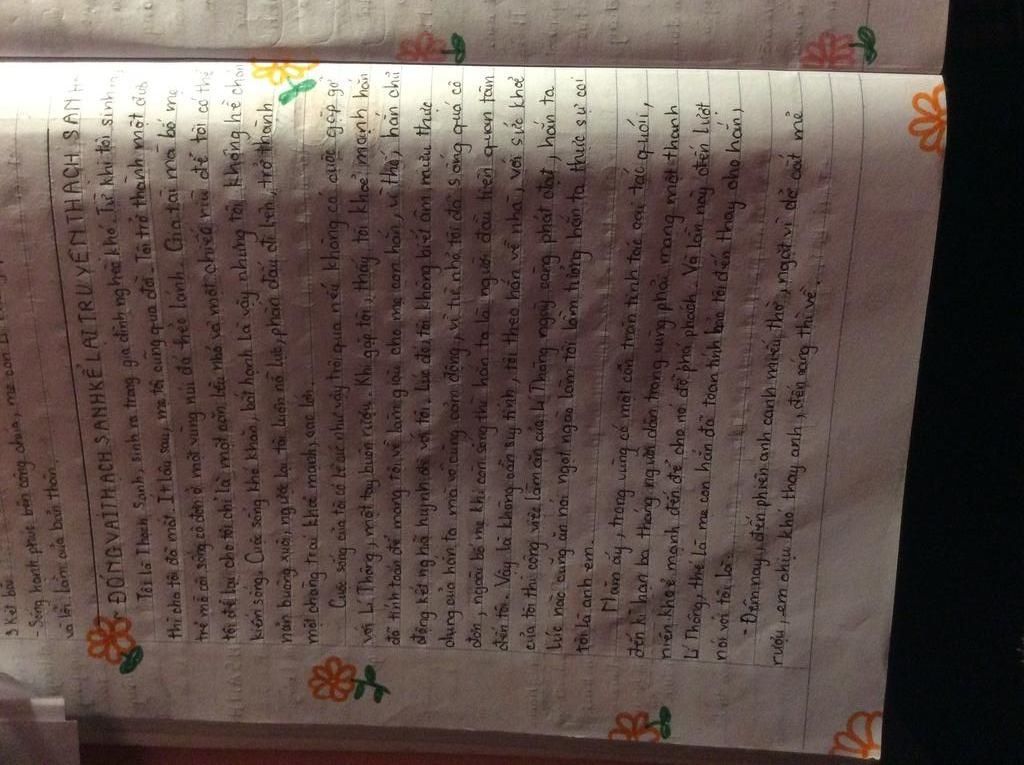 3 Kết bài
- Sống hạnh phúc bên công chúa, mẹ con Lí
và lỗi lầm của bản thân.
ĐÓNG VAI THẠCH SANH KỂ LẠI TRUYỆN THẠCH SANH
Tôi là Thạch Sanh, sinh ra trong gia đình nghèo khó. Từ khi tôi sinh ra,
thì cha tôi đã mất. Ít lâu sau, mẹ tôi cũng qua đời. Tôi trở thành một đứa
trẻ mồ côi sống cô đơn ở một vùng núi đá treo leo. Gia tài mà bố mẹ
tôi để lại cho tôi chỉ là một căn lều nhỏ và một chiếc rìu để tôi có thể
kiếm sống. Cuộc sống khó khăn, bất hạnh là vậy nhưng tôi không hề chán
nản buông xuôi, ngược lại tôi luôn nỗ lực, phấn đấu để lớn, trở thành
một chàng trai khoẻ mạnh, cao lớn.
Cuộc sống của tôi có lẽ cứ như vậy trôi qua nếu không có cuộc gặp gỡ
với Lí Thông, một tay buôn rượu. Khi gặp tôi, thấy tôi khoẻ mạnh hắn
đã tính toán để mang tôi về làm giàu cho mẹ con hắn, vì thế, hắn chủ
động kết nghĩa huynh đệ với tôi. Lúc đó, tôi không biết âm mưu thực
dụng của hắn ta mà vô cùng cảm động, vì từ nhỏ tôi đã sống quá cô
đơn, ngoài bố mẹ khi còn sống thì hắn ta là người đầu tiên quan tâm
đến tôi. Vậy là không cần suy tính, tôi theo hắn về nhà, với sức khoẻ
của tôi thì công việc làm ăn của Lí Thông ngày càng phát đạt, hắn ta
lúc nào cũng ăn nói ngọt ngào làm tôi lầm tưởng hắn ta thực sự coi
tôi là anh em.
Năm ấy, trong vùng có một con trăn tinh tác oai tác quái,
đến kì hạn ba tháng người dân trong vùng phải mang một thanh
niên khoẻ mạnh đến để cho nó đỡ phá phách. Và lần này đến lượt
Lí Thông, thế là mẹ con hắn đã toan tính bảo tôi đến thay cho hắn,
nói với tôi là:
- Đêm nay, đến phiên anh canh miếu thờ, ngặt vì dở cất mẻ
rượu, em chịu khó thay anh, đến sáng thì về.